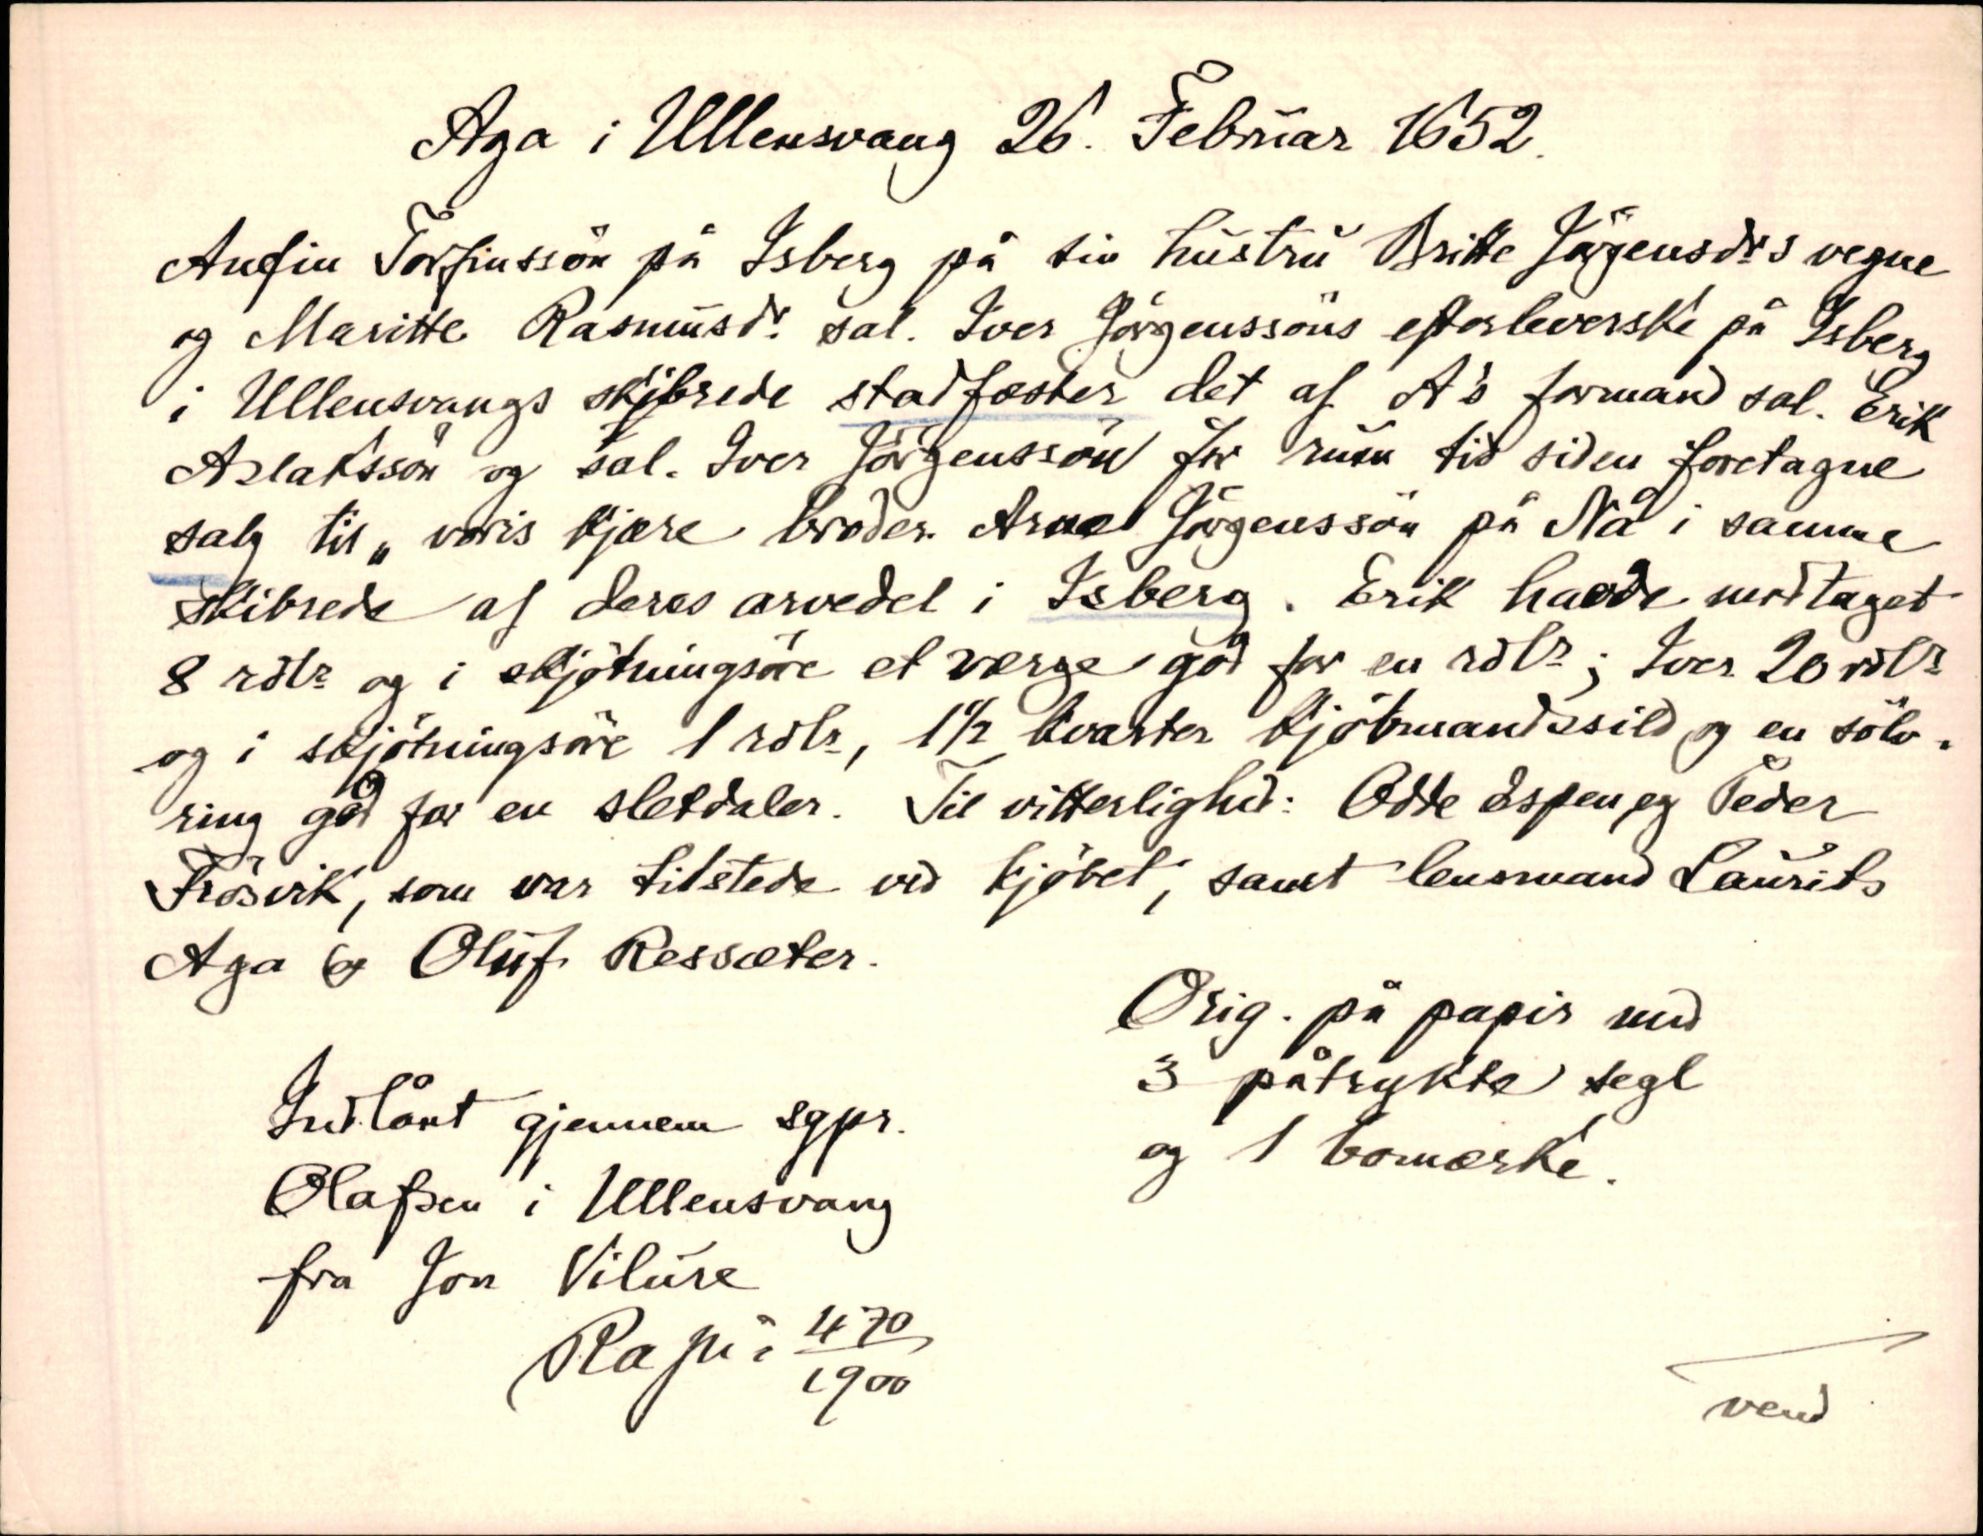 Aga i Ullensvang 26. Februar 1652.
Anfin Torfinssön på Isberg på sin hustru Britte Jörgensdrs vegne
og Maritte Rasmusdr. sal. Iver Jörgenssöns efterleverske på Isberg
i Ullensvangs skibrede stadfæster det af A's formand sal. Erik
Aslakssön og sal. Iver Jörgenssön for rum tid siden foretagne
salg til „voris kjære broder Arne Jörgenssön på Nå i samme
skibrede af deres arvedel i Isberg. Erik havde modtaget
8 rdlr og i skjötningsöre et værge god for en rdlr; Iver 20 rdlr
og i skjötningsöre 1 rdlr, 1½ kvarter kjöbmandssild og en sölv-
ring god for en sletdaler. Til vitterlighed: Odde Espen og Peder
Frösvik, som var tilstede ved kjöbet, samt lensmand Laurits
Aga og Oluf Ressæter.
Orig. på papir med
3 påtrykte segl
og 1 bomærke.
Indlånt gjennem sgpr.
Olafsen i Ullensvang
fra Jon Vilure
Ra pk: 470/1900
vend